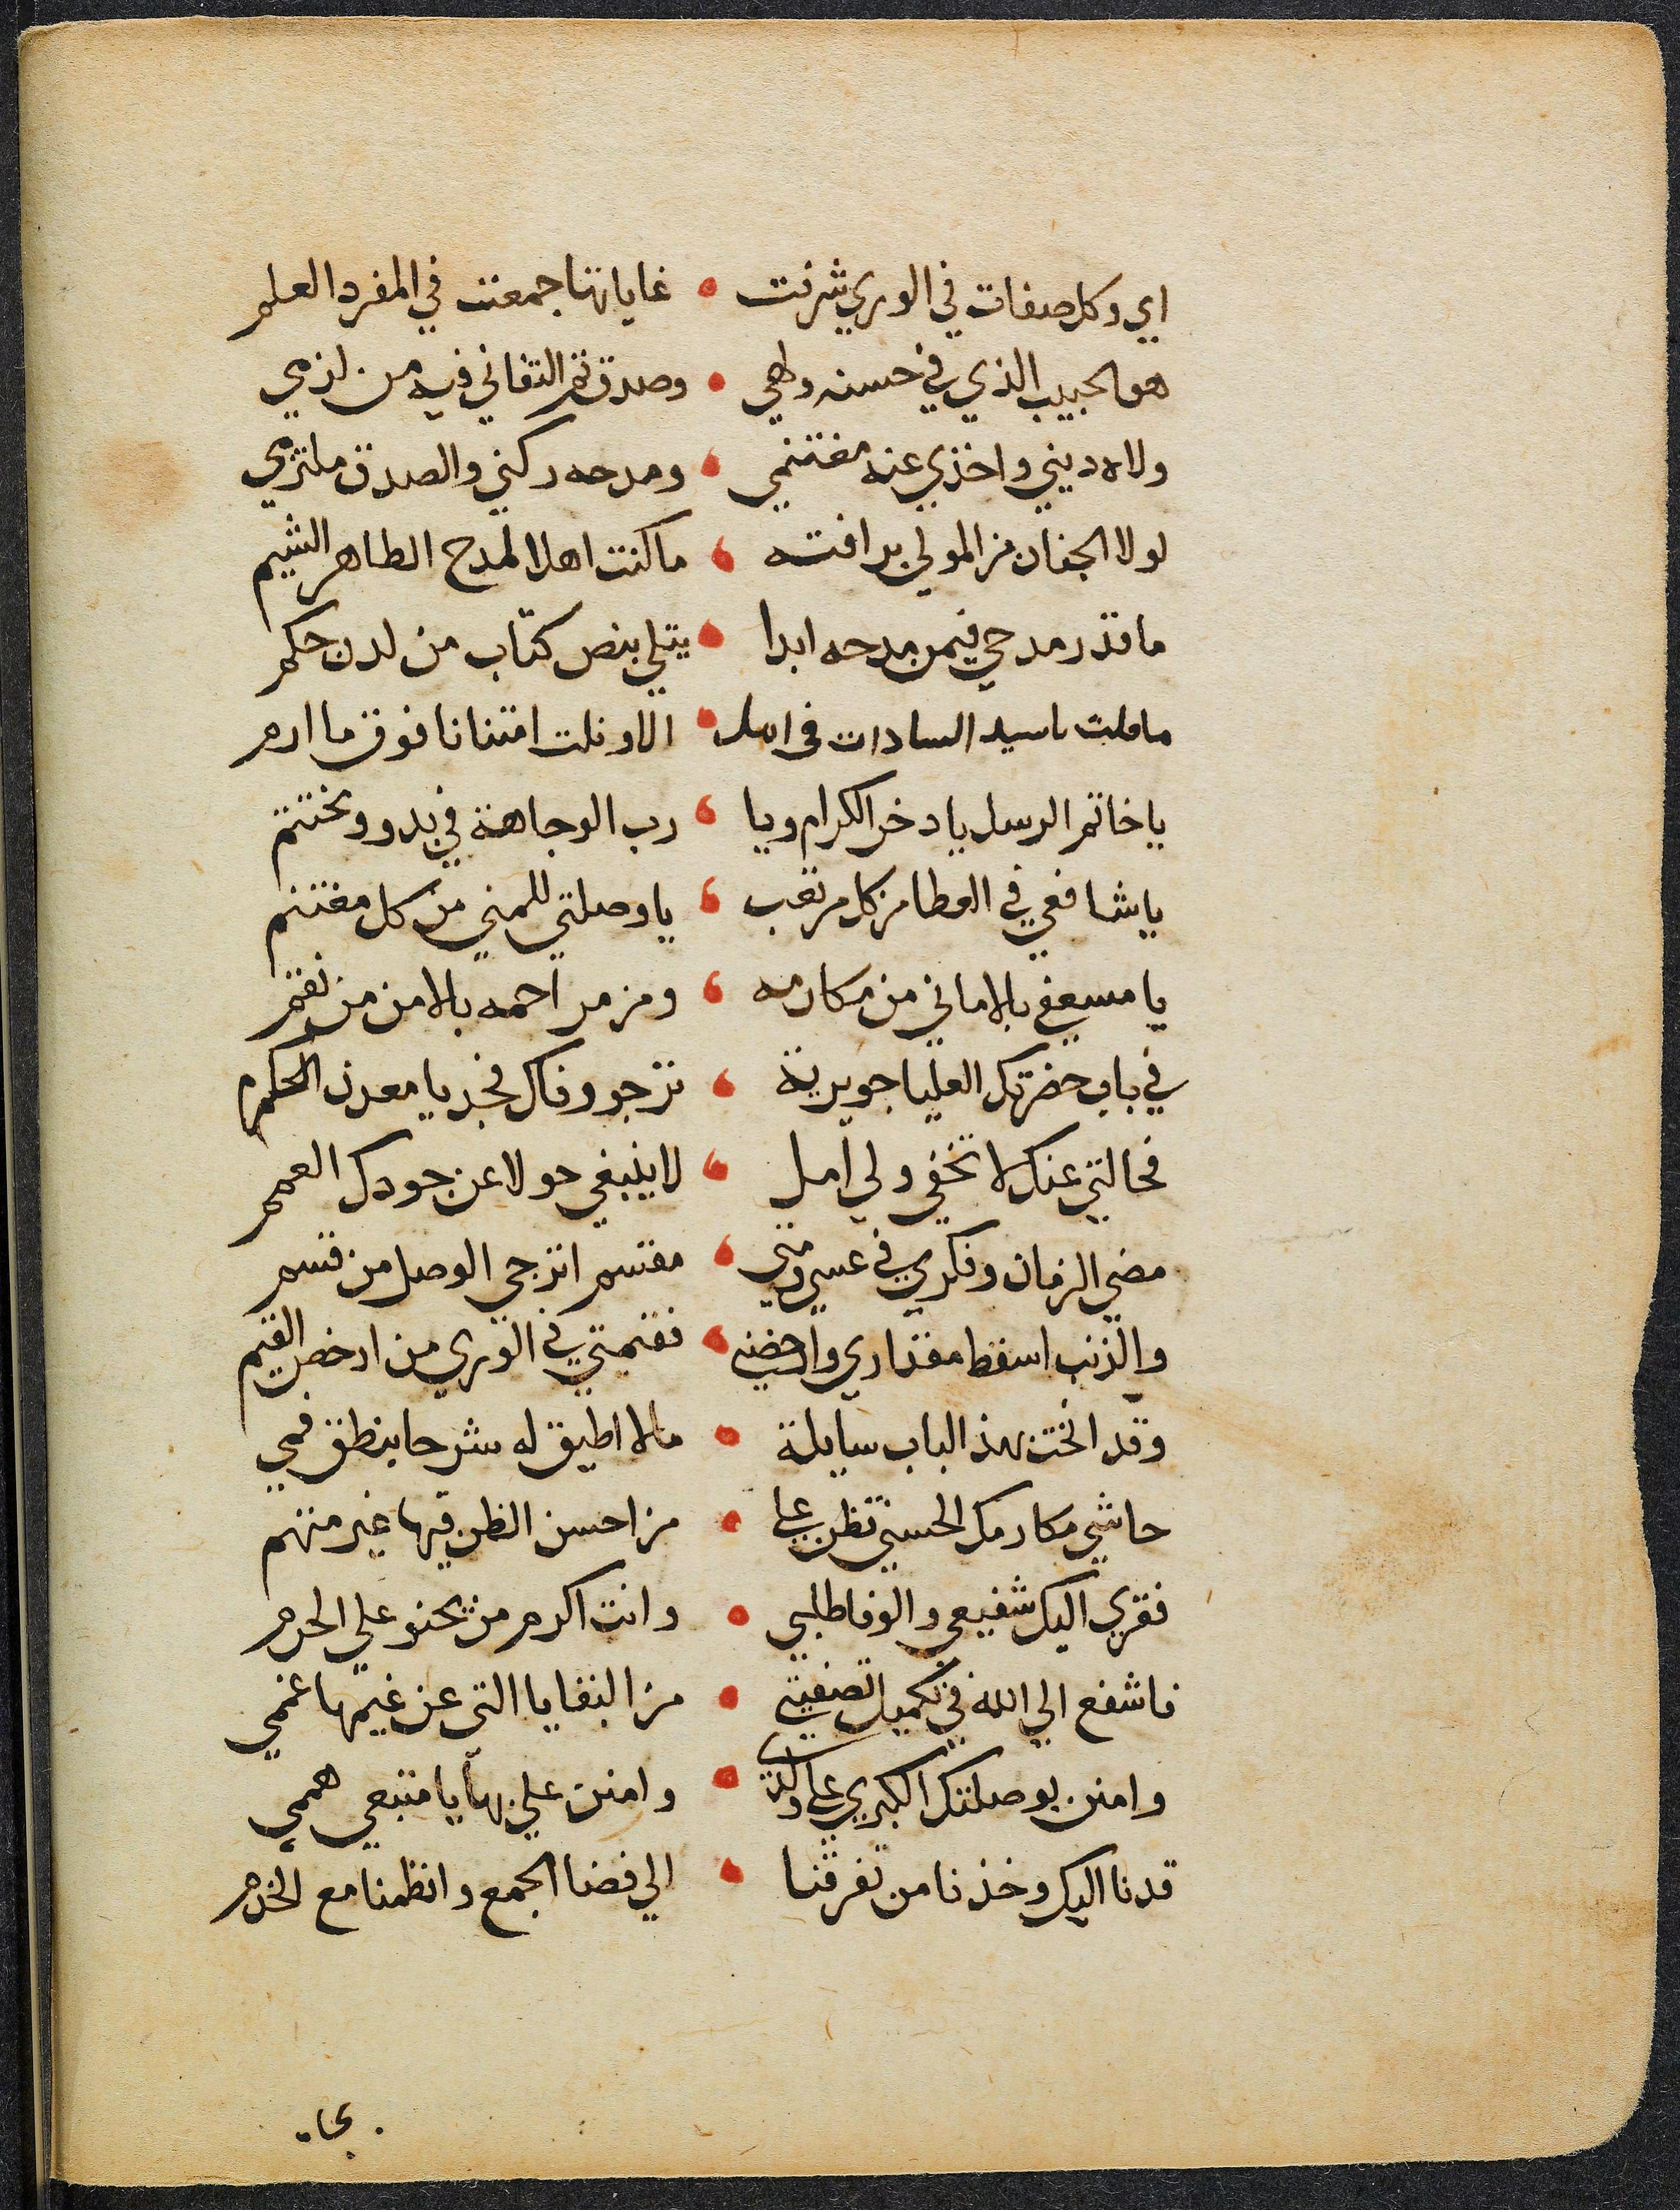 اي وكل صفات في الوري شرفت • غاياتها جمعت في المفرد العلم
هو الحبيب الذي في حسنه ولهي • وصدق ثم التفاني فيه من لزمي
ولاه ديني واخذي عنه مغتنمي • ومدحه ركني والصدق ملتزمي
لولا الجفان من المولي برافته • ما كنت اهلا لمدح الطاهر الشيم
ما قدر مدحي فيمن مدحه ابدا • يتلي بنص كتاب من لدن حكم
ما قلت يا سيد السادات في املي • الا ونلت امتنانا فوق ما ارم
يا خاتم الرسل يا دخر الكرام ويا • رب الوجاهة في بدو ومختتم
يا شافعي في العطا من كل مرتقب • يا وصلتي للمني من كل مغتنم
يا مسعفي بالاماني من مكارمه • ومن مراحمه بالامن من نقم
في باب حضرتك العليا جويرية • ترجو وفاك فجد يا معدن الحكم
فحالتي عنك لا تخفي ولي امل • لا ينبغي حولا عن جودك العمم
مضي الزمان وفكري في عسي ومتي • مقتسم ارتجي الوصل من قسم
والذنب اسقط مقداري وارخصني • فقيمتي في الوري من ارخص القيم
وقد انخت بهذا الباب سايلة • مالا اطيق له شرحا ينطق فمي
حاشي مكارمك الحسني تظن علي • من احسن الظن فيها غير متهم
فقري اليك شفيعي والوفا طلبي • وانت اكرم من يحنو علي الحرم
فاشفع الي الله في تكميل تصفيتي • من البقايا التي عن غيمها غممي
وامنن بوصلتك الكبري علي • وامنن علي بها يا منبعي هممي
قدنا اليك وخذنا من تفرقنا • الي فضا الجمع وانظمنا مع الخدم
بجاه